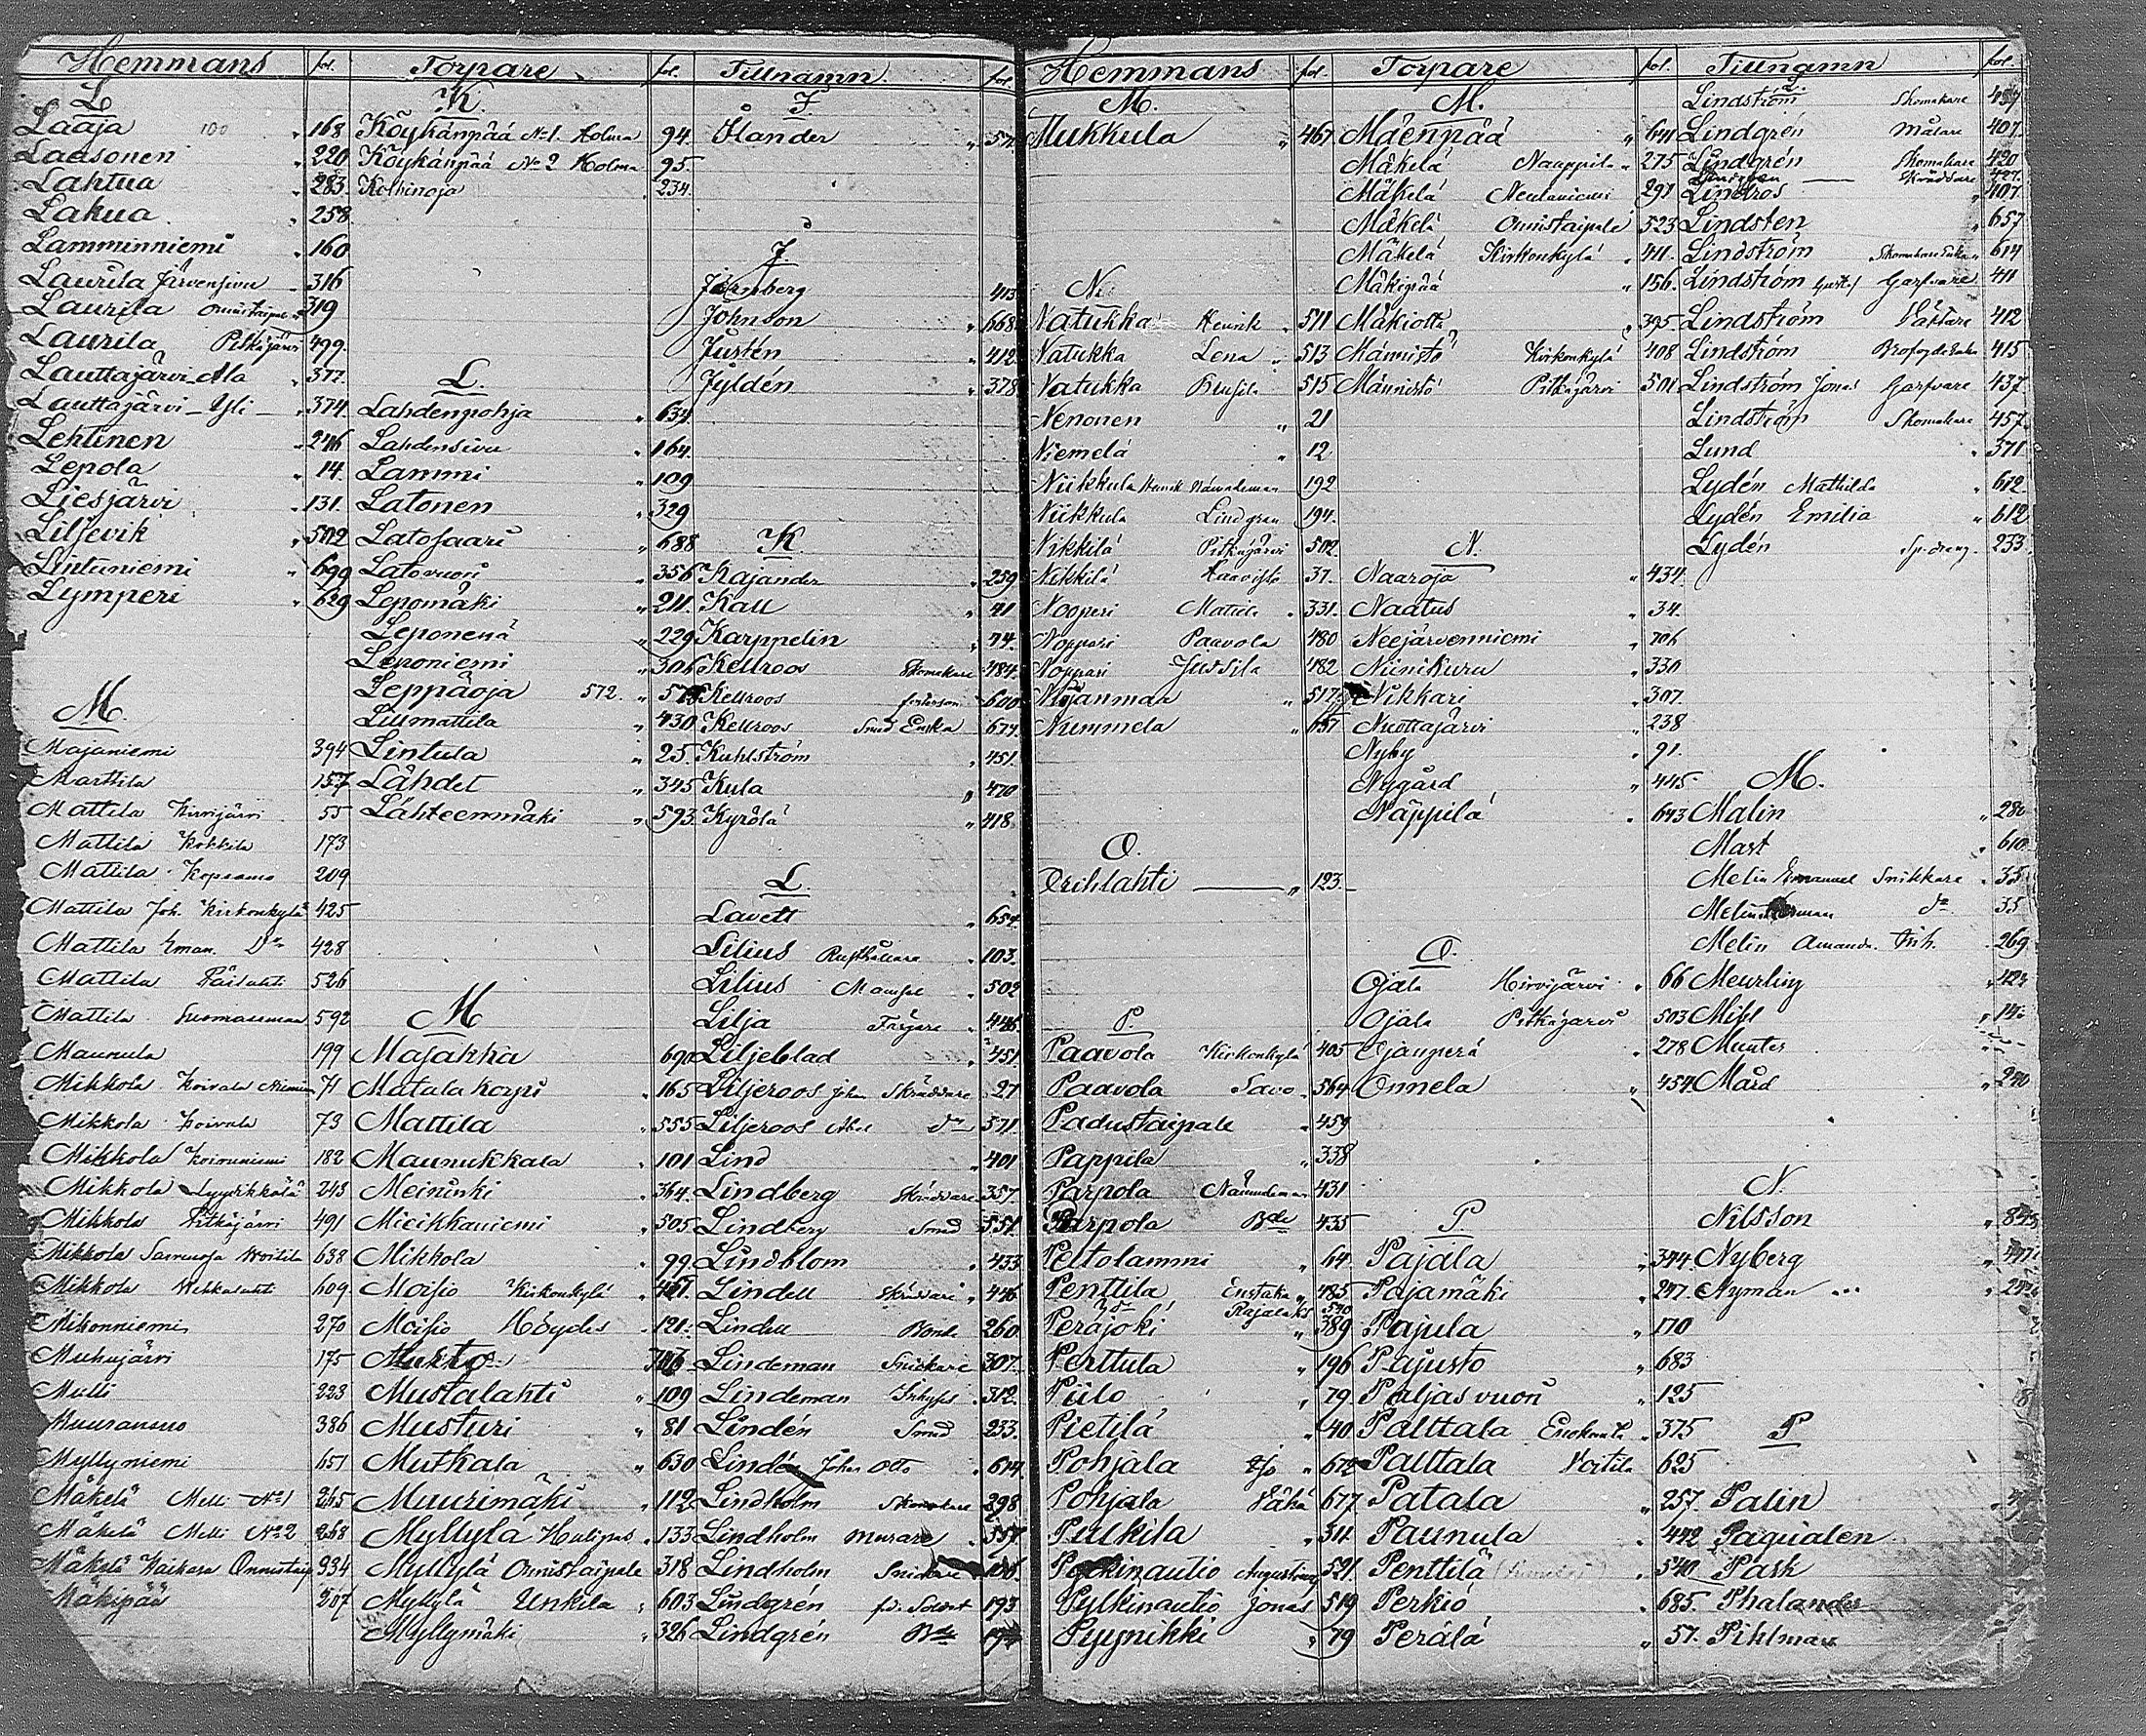 Hemmans fol.
L
Laaja 100 168
Laasonen 220
Lahtua 283
Lakua 258
Lamminniemi 160
Laurila Järvensivu 316
Laurila Onnistaipale 319
Laurila Pitkäjärvi 499
Lauttajärvi Ala 377
Lauttajärvi Yli 374
Lehtinen 246
Lepola 14
Liesjärvi 131
Liljevik 502
Lintuniemi 699
Lymperi 629
M.
Majaniemi 394
Marttila 157
Mattila Hirvijärvi 55
Mattila Kokkila 173
Mattila Kopsamo 209
Mattila Joh. Kirkonkylä 425
Mattila Eman. Do 428
Mattila 526
Mattila 592
Maunula 199
Mikkola Koivula 71
Mikkola Koivula 73
Mikkola Koivuniemi 182
Mikkola Lyydikkälä 243
Mikkola Pitkäjärvi 491
Mikkola 638
Mikkola 609
Mikonniemi 270
Muhujärvi 175
Multi 223
Muuransuo 386
Myllyniemi 651
Mäkelä Melli No 1 265
Mäkelä Melli No 2 268
Mäkelä Onnistaip 334
Mäkipää 207
Torpare fol.
K.
Köykänpää No 1. Holma 94.
Köykänpää No 2 Holma 95.
234.
L.
Lahdenpohja 634
Lahdensivu 164.
Lammi 109
Latonen 329
Latosaari 688
Latovuori 356
Lepomäki 211.
Leponenä 229
Leponiemi 306
Leppäoja 572.
Liumattila 430
Lintula 25.
Lähdet 345
Lähteenmäki 593.
M
Majakka 690
Matala korpi 165
Mattila 555
Maunukkala 101
Meininki 364.
Mieikkaniemi 505
Mikkola 99
Moisio Kirkonkylä 461
Moisio Höydes 121.
Mustalahti 109
Musturi 81
Mutkala 630
Muurimäki 112
Myllylä Hulipas 133
Myllylä Onnistaipale 318
Myllylä Unkila 603
Myllymäki 326
Tillnamn fol.
I.
Ilander
J.
Järnberg 413
Johnson 668
Justén 412
Jyldén 378
K
Kajander 259
Kall 41
Karppelin 74.
Kellroos Skomakare 484.
Kellroos 600
Kellroos Smed Enka 677
Kuhlström 451.
Kula 470
Kyrölä 418
L.
Lavett 654
Lilius Rusthållare 103.
Lilius Mamsel 502
Lilja Färgare 446
Liljeblad 451
Liljeroos Johan Skräddare 27
Liljeroos do 571
Lind 401
Lindberg Skräddare 357.
Lindberg Smed 551
Lindblom 433
Lindell Skräddare 446
Lindell Bonde 260
Lindeman Snickare 307.
Lindeman Inhyses 312.
Lindén Smed 233.
Lindén Johan Otto 614
Lindholm Skomakare 298
Lindholm Murare 557
Lindholm Snickare
Lindgrén fd. Soldat 193
Lindgrén
Hemmans fol.
M.
Mukkula 467
N.
Natukka Henrik 511
Natukka Lena 513
Natukka 515
Nenonen 21
Niemelä 12
Niikkula Henrik Nämndeman 192
Niikkula Lindgren 194.
Nikkilä Pitkäjärvi 502.
Nikkilä Haavisto 37.
Nooperi Mattila 331.
Noppari Paavola 480
Noppari Jussila 482
517
Nummela 657
O.
Orihlahti 123
P.
Paavola Kirkonkylä 405
Paavola Savo 564
Padustaipale 459
Pappila 338
Parpola Nämndeman 431
Parpola Bde 435
Peltolammi 64
Penttilä Eustaka 485
Do Rajalaks 540
Peräjoki 389
Perttula 196
Piilo 79
Pietilä 40
Pohjala Iso 672
Pohjala Vähä 677
Pulkila 311
Augusti 521
Pylkinautio Jonas 519
Pyynikki 79
Torpare fol.
M.
Mäenpää 641
Mäkelä Nauppila 275
Mäkelä Neulaniemi 291
Mäkelä Onnistaipale 523
Mäkelä Kirkonkylä 411.
Mäkipää 156.
Mäkiotta 395
Männistö Kirkonkylä 408
Männistö Pitkäjärvi 501
N.
Naaroja 434.
Naatus 34.
Neejärvenniemi 706
Niinikuru 330
Nikkari 307.
Nuottajärvi 238
Nyby 91.
Nygård 445
Näppilä 643
O.
Ojala Hirvijärvi 66
Ojala Pitkäjärvi 503
Ojanperä 278
Onnela 454
P
Pajala 344
Pajamäki 247.
Pajula 170
Pajusto 683
Paljasvuori 125
Palttala Enokunta 375
Palttala Vertila 625
Patala 257.
Paunula 442
Penttilä 540
Perkiö 685.
Perälä 57.
Tillnamn fol.
L.
Lindström Skomakare 457
Lindgrén Målare 407.
Lindgrén Skomakare 420
Skräddare 427.
Lindros 407
Lindsten 657
Lindström Skomakare Enka 614
Lindström Gust. Garfvare 411
Lindström 412
Lindström 415
Lindström Jonas Garfvare 437
Lindström Skomakare 457.
Lund 371
Lydén Mathilda 612.
Lydén Emilia 612
Lydén 233
M.
Malin 280
Mast 610
Melin Emanuel Snikkare 35
Melin Herman do 35
Melin Amanda 269
Meurling
Mihl
Munter
Mård 240
N.
Nilsson
Nyberg
Nyman
P
Palin
Paqualen
Pask
Phalander
Pihlman